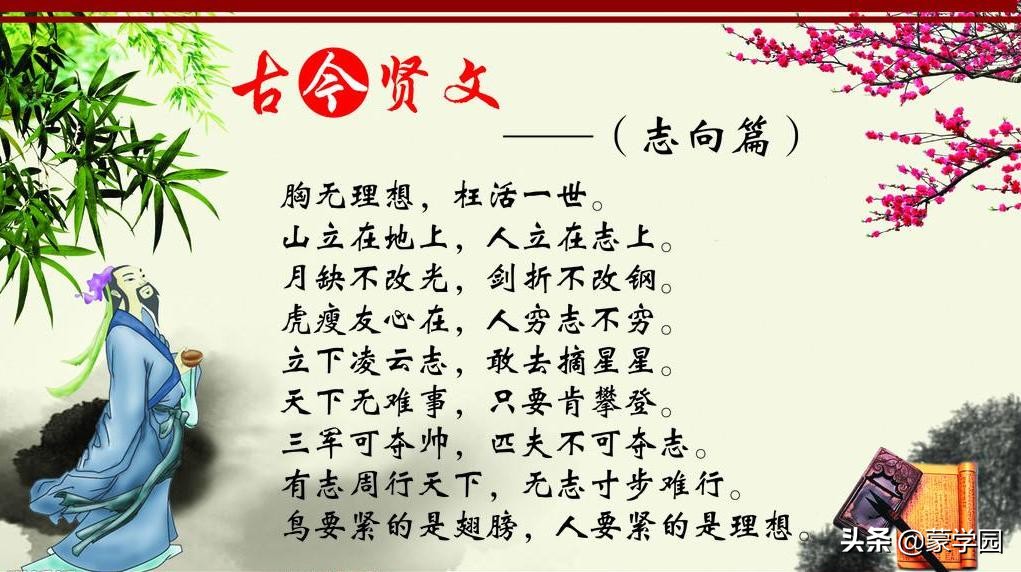 古今贤文
——（志向篇）
胸无理想，枉活一世。
山立在地上，人立在志上。
月缺不改光，剑折不改钢。
虎瘦友心在，人穷志不穷。
立下凌云志，敢去摘星星。
天下无难事，只要肯攀登。
三军可夺帅，匹夫不可夺志。
有志周行天下，无志寸步难行。
鸟要紧的是翅膀，人要紧的是理想。
头条@蒙学园